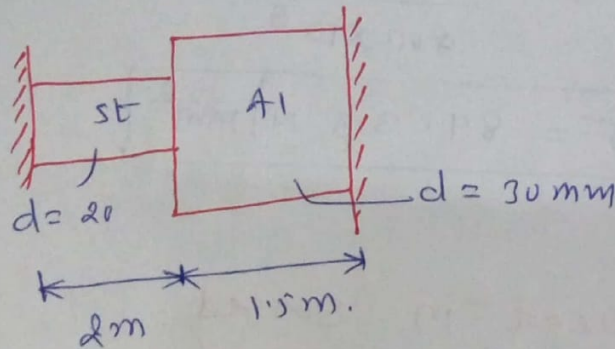 st
Al
d = 20
d = 30 mm
2m
1.5m.